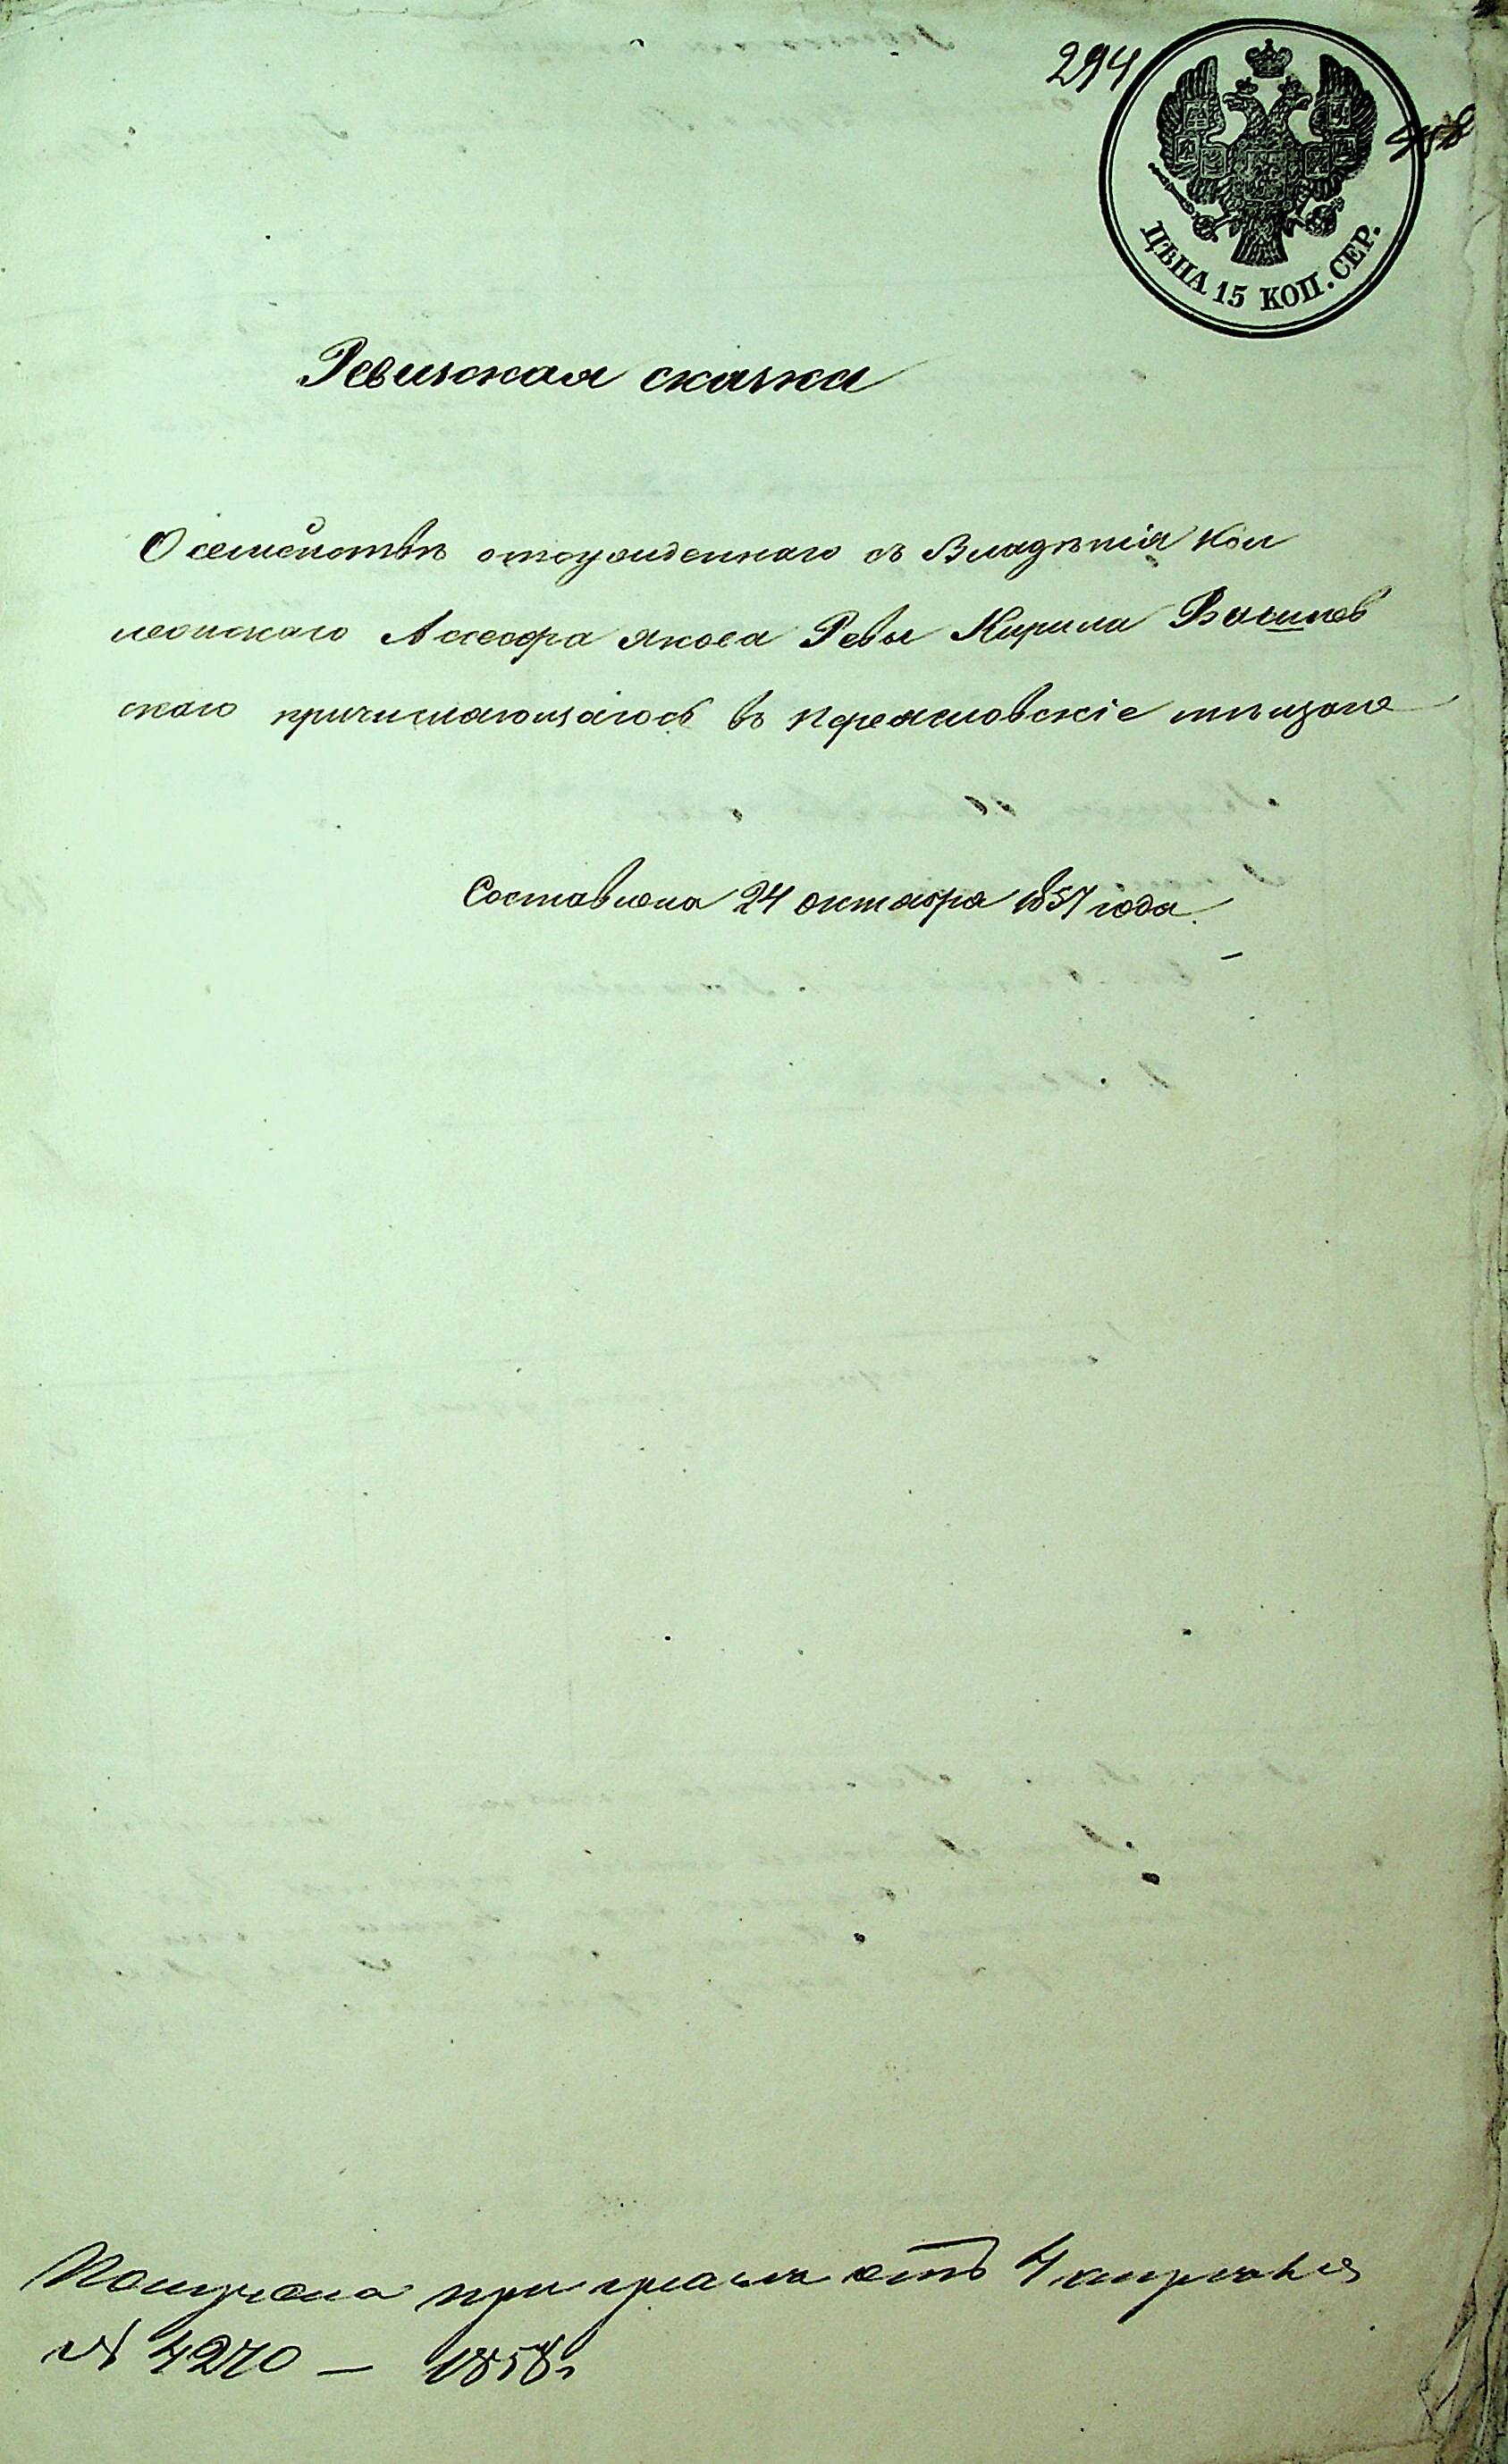 294
ЦѢНА 15 КОП. СЕР.
Ревизская сказка
О семействѣ отсужденнаго съ Владѣнія Кол
лежскаго Ассесора Якова Ревы Кирила Василев
скаго причисляющагось въ Переясловскіе мѣщане
Составлена 24 октября 1857 года.
Получена при указѣ отъ 4 апрѣля
№ 4270 — 1858 г.